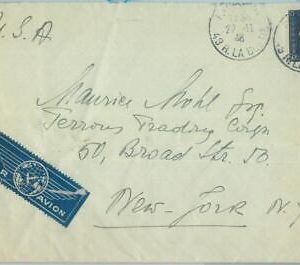 U.S.A
43 R. LA B
Maurice Mohl Esq.
Ferrous Trading Corp
50, Broad Str. 50.
New-York N.Y
AVION